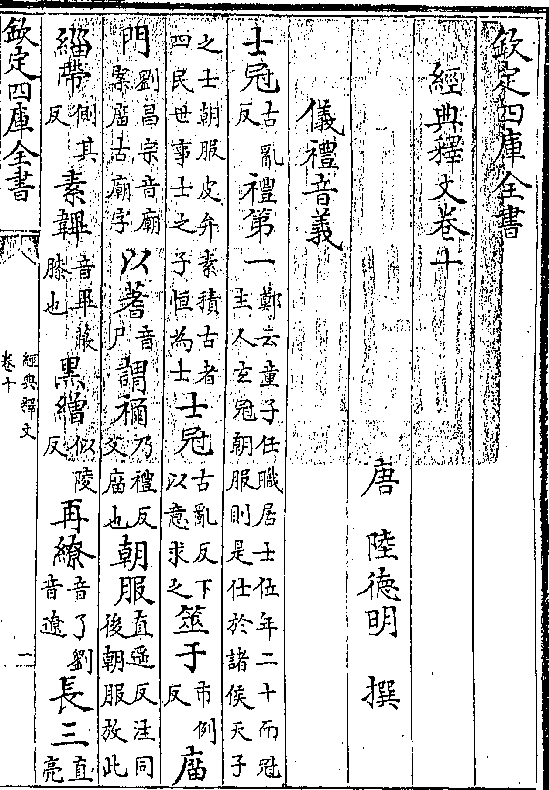 欽定四庫全書
經典釋文卷十
唐 陸德明 撰
儀禮音義
士冠古亂反禮第一鄭云童子任職居士位年二十而冠主人玄冠朝服則是仕於諸侯天子
之士朝服皮弁素積古者四民世事士之子恒為士士冠古亂反下以意求之筮于市例反廟
門劉昌宗音廟案廟古廟字以蓍音尸謂禰乃禮反父廟也朝服直遥反注同後朝服放此
緇帶側其反素韠音畢蔽膝也黑繒似陵反再繚音了劉音遼長三直亮
欽定四庫全書
經典釋文
卷十
一